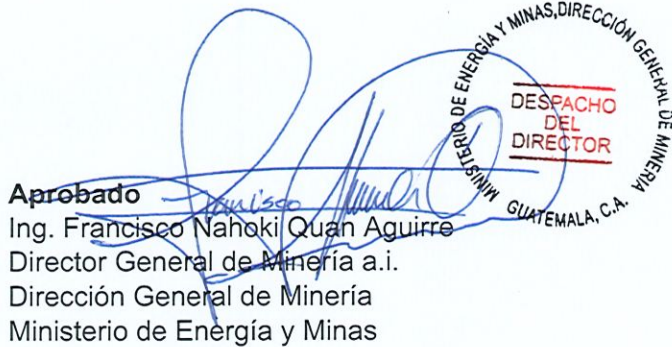 MINISTERIO DE ENERGÍA Y MINAS, DIRECCIÓN GENERAL DE MINERÍA
DESPACHO
DEL
DIRECTOR
GUATEMALA, C.A.
Aprobado
Ing. Francisco Nahoki Quan Aguirre
Director General de Minería a.i.
Dirección General de Minería
Ministerio de Energía y Minas